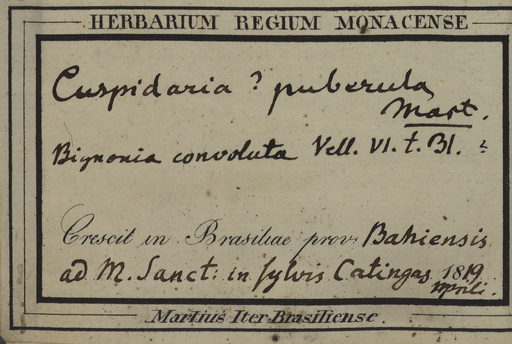 HERBARIUM REGIUM MONACENSE
Cuspidaria ? puberula
Mart.
Bignonia convoluta Vell. VI. t. 31.
Crescit in Brasiliae prov. Bahiensis
ad M. Sanct: in sylvis Catingas 1819
Martius Iter Brasiliense.